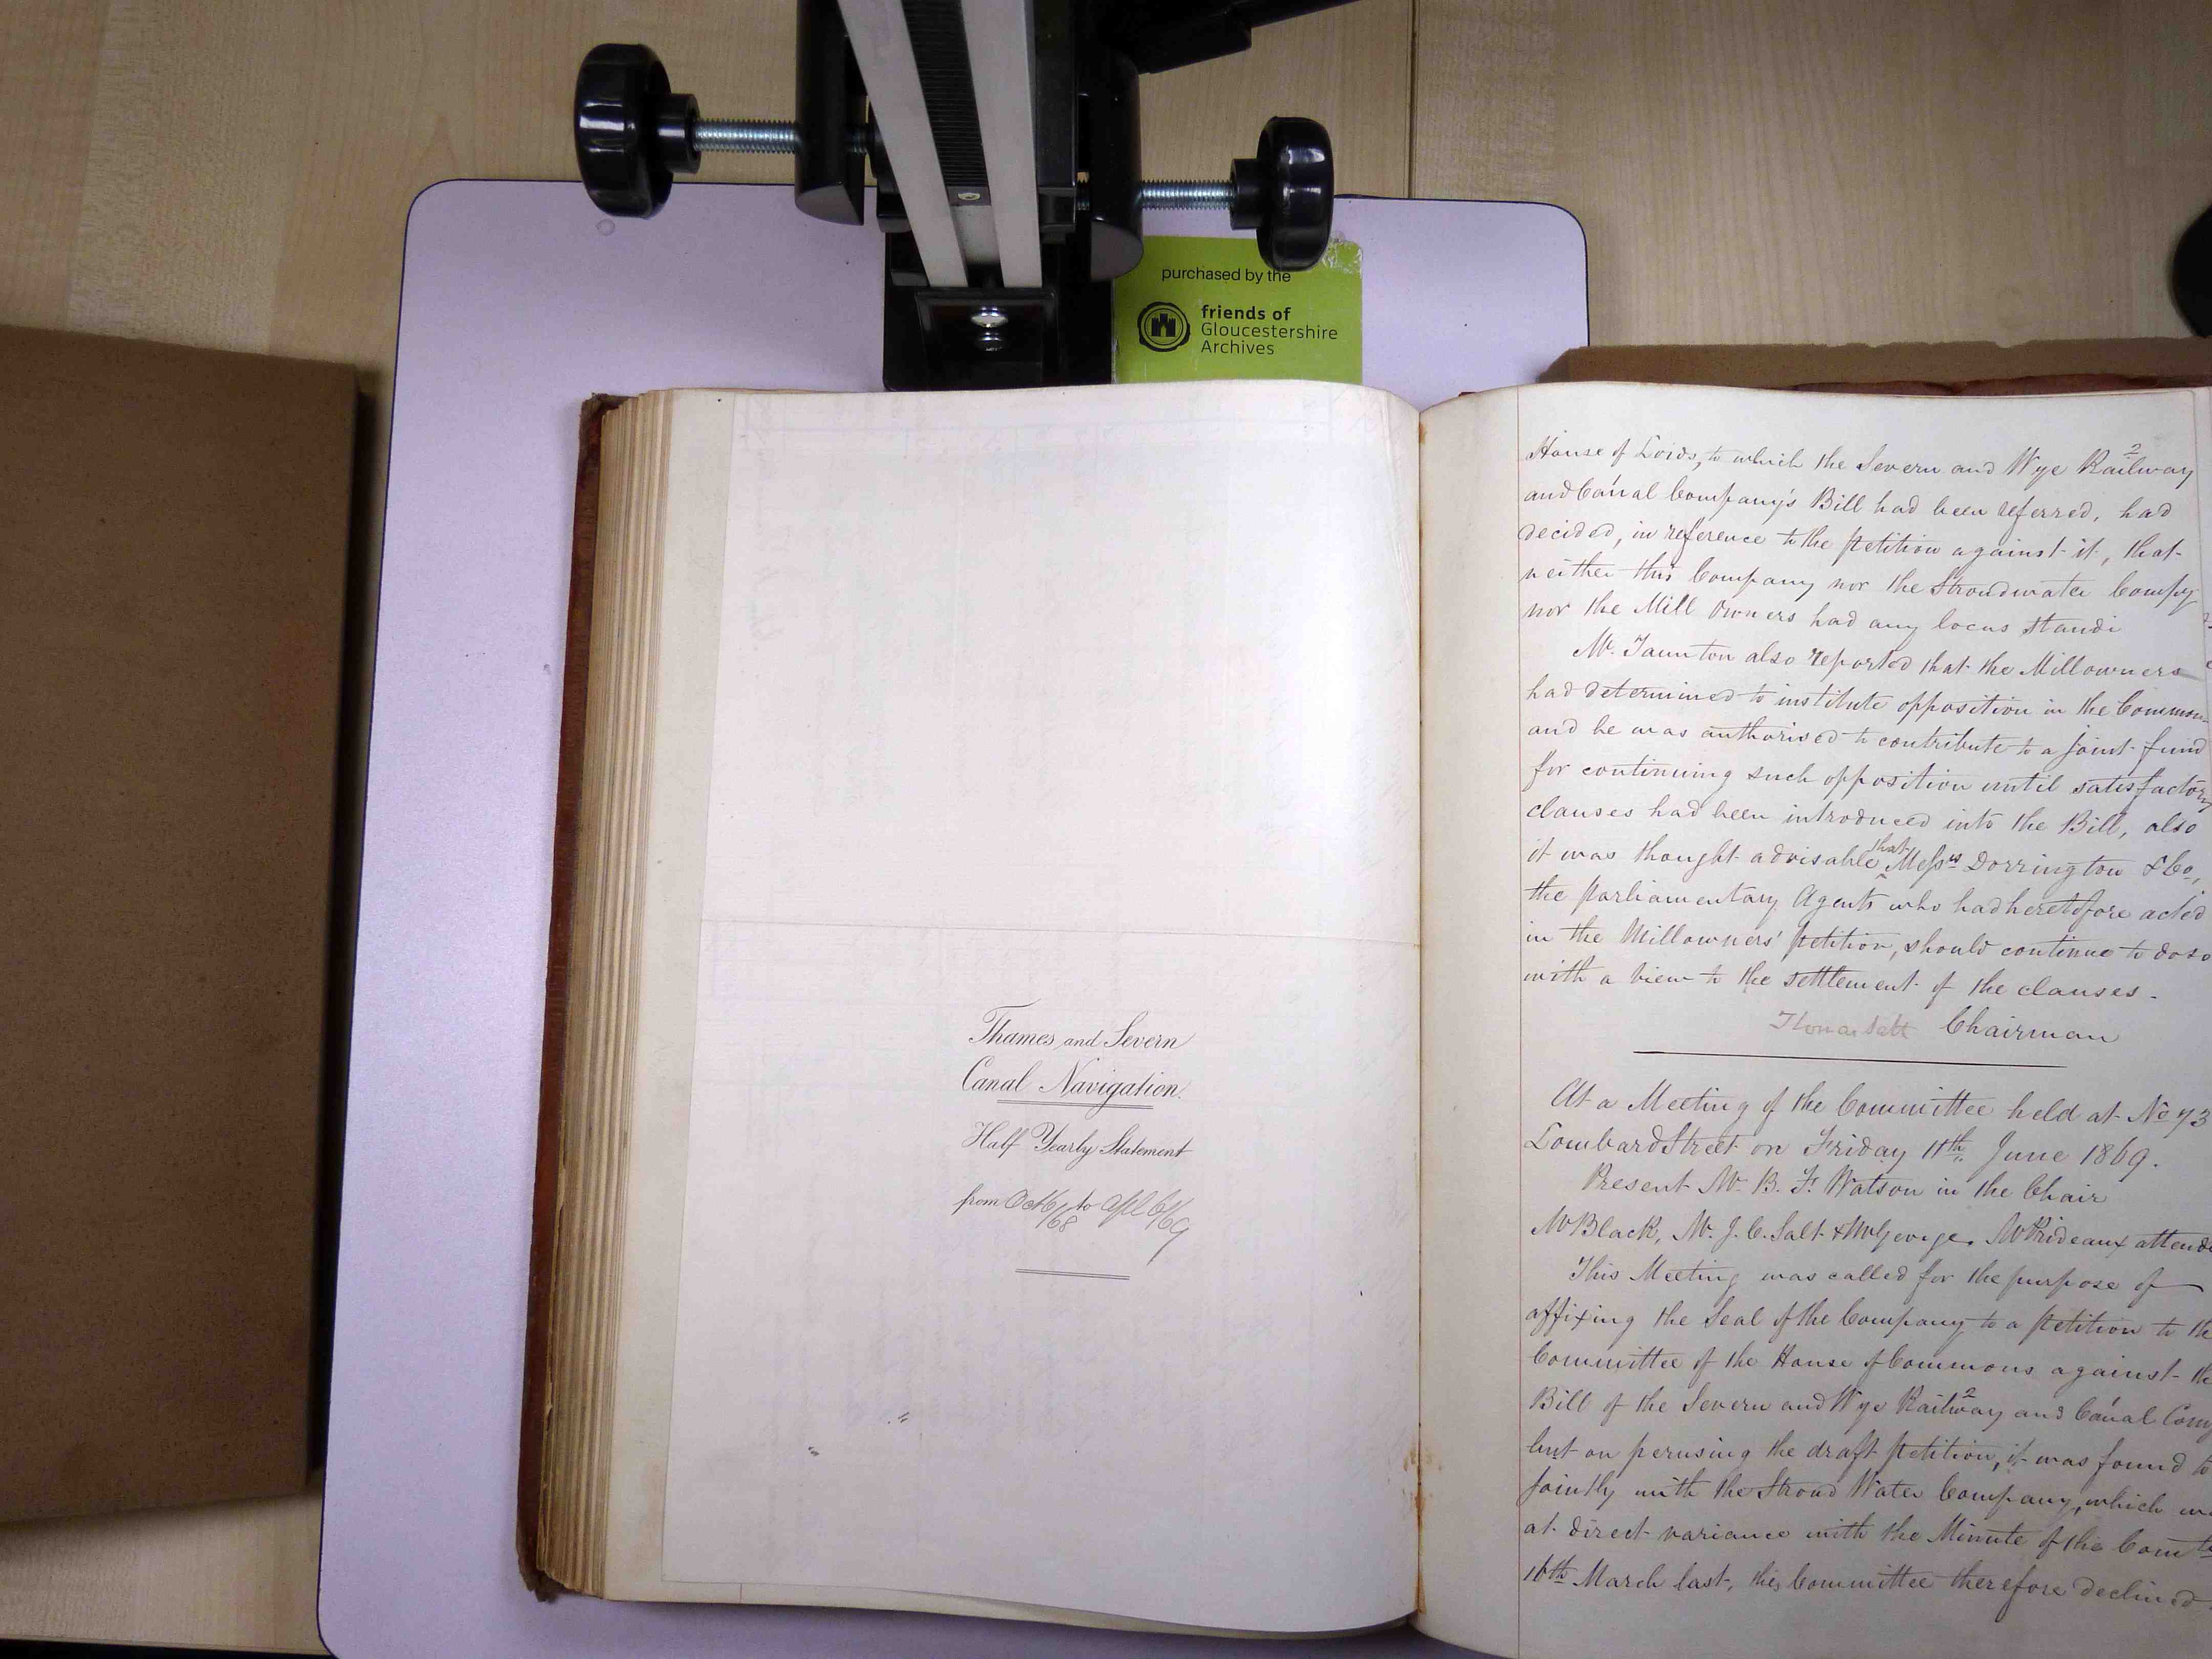 purchased by the
friends of
Gloucestershire
Archives
Thames and Severn
Canal Navigation.
Half Yearly Statement
from Oct 6/68 to Apl 6/69
House of Lords, to which the Severn and Wye Railway 2
and Canal 1 Company's Bill had been referred, had
decided, in reference to the petition against it, that
neither this Company nor the Stroudwater Compy
nor the Mill Owners had any locus standi
Mr. Taunton also reported that the Millowners
had determined to institute opposition in the Commons
and he was authorised to contribute to a joint fund
for continuing such opposition until satisfactory
clauses had been introduced into the Bill, also
it was thought advisable that Messrs Dorrington & Co,
the parliamentary Agents who had heretofore acted
in the Millowners' petition, should continue to do so
with a view to the settlement of the clauses.
Thomas Salt Chairman
At a Meeting of the Committee held at No 73
Lombard Street on Friday 11th June 1869.
Present Mr. B. F. Watson in the Chair
Mr Black, Mr. J. C. Salt & Mr George. Mr Prideaux attend
This Meeting was called for the purpose of
affixing the Seal of the Company to a petition to the
Committee of the House of Commons against the
Bill of the Severn and Wye Railway 2 and Canal 1 Com
but on perusing the draft petition, it was found to
jointly with the Stroud Water Company, which
at direct variance with the Minute of the Comtee
16th March last, this Committee therefore declined